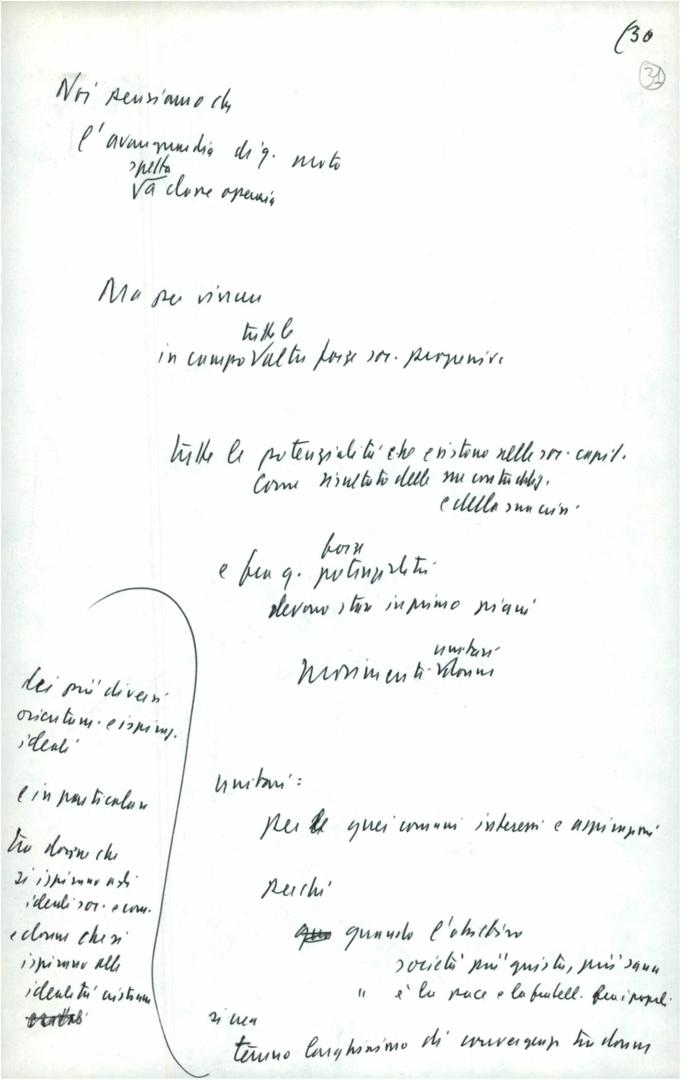 (30
31
Noi pensiamo che
l'avanguardia di q. moto
spetta
a classe operaia
Ma per vincere
tutte le
in campo altre forze soc. progressive
tutte le potenzialità che esistono nella soc. capit.
come risultato delle sue contraddiz.
e della sua crisi
forze
e fra q. potenzialità
devono stare in primo piano
unitari
movimenti donne
dei più diversi
orientam. e ispiraz.
ideali
e in particolare
tra donne che
si ispirano agli
ideali soc. e com.
e donne che si
ispirano alle
idealità cristiane
unitari:
per quei comuni interessi e aspirazioni
perché
quando l'obiettivo
società più giusta, più sana
" è la pace e la fratell. fra i popoli
si crea
terreno larghissimo di convergenza tra donne